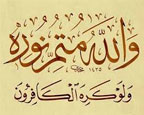 وَاللَّهُ مُتِمُّ نُورِهِ
وَلَوْ كَرِهَ الْكَافِرُونَ